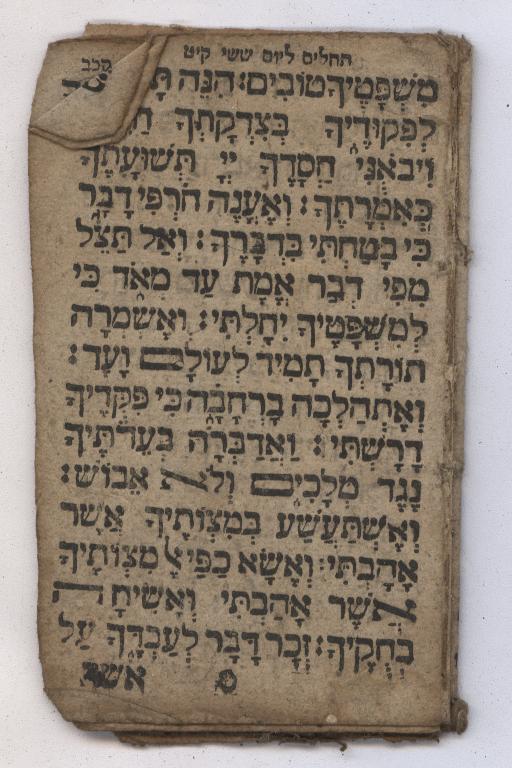 תהלים ליום ששי קיט
קכב
מִשְׁפָּטֶיךָ טוֹבִים: הִנֵּה
לְפִקּוּדֶיךָ בְּצִדְקָתְךָ
וִיבֹאֻנִי חַסְדֶּךָ יְיָ תְּשׁוּעָתְךָ
כְּאִמְרָתֶךָ: וְאֶעֱנֶה חֹרְפִי דָבָר
כִּי בָטַחְתִּי בִּדְבָרֶךָ: וְאַל תַּצֵּל
מִפִּי דְבַר אֱמֶת עַד מְאֹד כִּי
לְמִשְׁפָּטֶיךָ יִחָלְתִּי: וְאֶשְׁמְרָה
תוֹרָתְךָ תָמִיד לְעוֹלָם וָעֶד:
וְאֶתְהַלְּכָה בָרְחָבָה כִּי פִקֻּדֶיךָ
דָרָשְׁתִּי: וַאֲדַבְּרָה בְעֵדֹתֶיךָ
נֶגֶד מְלָכִים וְלֹא אֵבוֹשׁ:
וְאֶשְׁתַּעֲשַׁע בְּמִצְוֹתֶיךָ אֲשֶׁר
אָהָבְתִּי: וְאֶשָּׂא כַפַּי אֶל מִצְוֹתֶיךָ
אֲשֶׁר אָהַבְתִּי וְאָשִׂיחָה
בְחֻקֶּיךָ: זְכָר דָּבָר לְעַבְדֶּךָ עַל
אשר